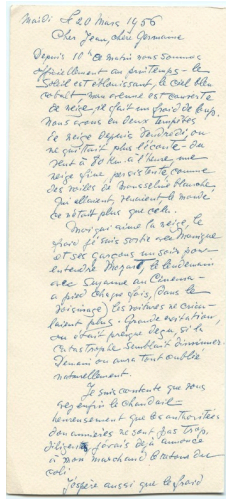 Mardi le 20 Mars 1956
Cher Jean, chère Germaine
Depuis 10h ce matin nous sommes
officiellement au printemps – le
soleil est éblouissant, le ciel bleu
cobalt – mon avenue est couverte
de neige, il fait un froid de loup.
nous avons eu deux tempêtes
de neige depuis vendredi, on
ne quittait plus l'écoute – du
vent à 70 km à l'heure, une
neige fine, persistante comme
des voiles de mousseline blanche,
qui allaient, venaient le monde
ce n'était plus que cela.
Moi qui aime la neige, le
froid je suis sortie avec Monique
et ses garçons un soir pour
entendre Mozart, le lendemain
avec Suzanne au Cinéma –
à pied chaque fois, (dans le
voisinage) les voitures ne circu-
laient plus – Grande excitation,
on était presque déçu, si la
catastrophe semblait diminuer.
Demain on aura tout oublié
naturellement.
Je suis contente que vous
ayez enfin le chandail –
heureusement que les autorités
douanières ne sont pas trop
diligentes j'avais déjà annoncé
à mon marchand le retour du
colis.
J'espère aussi que le froid